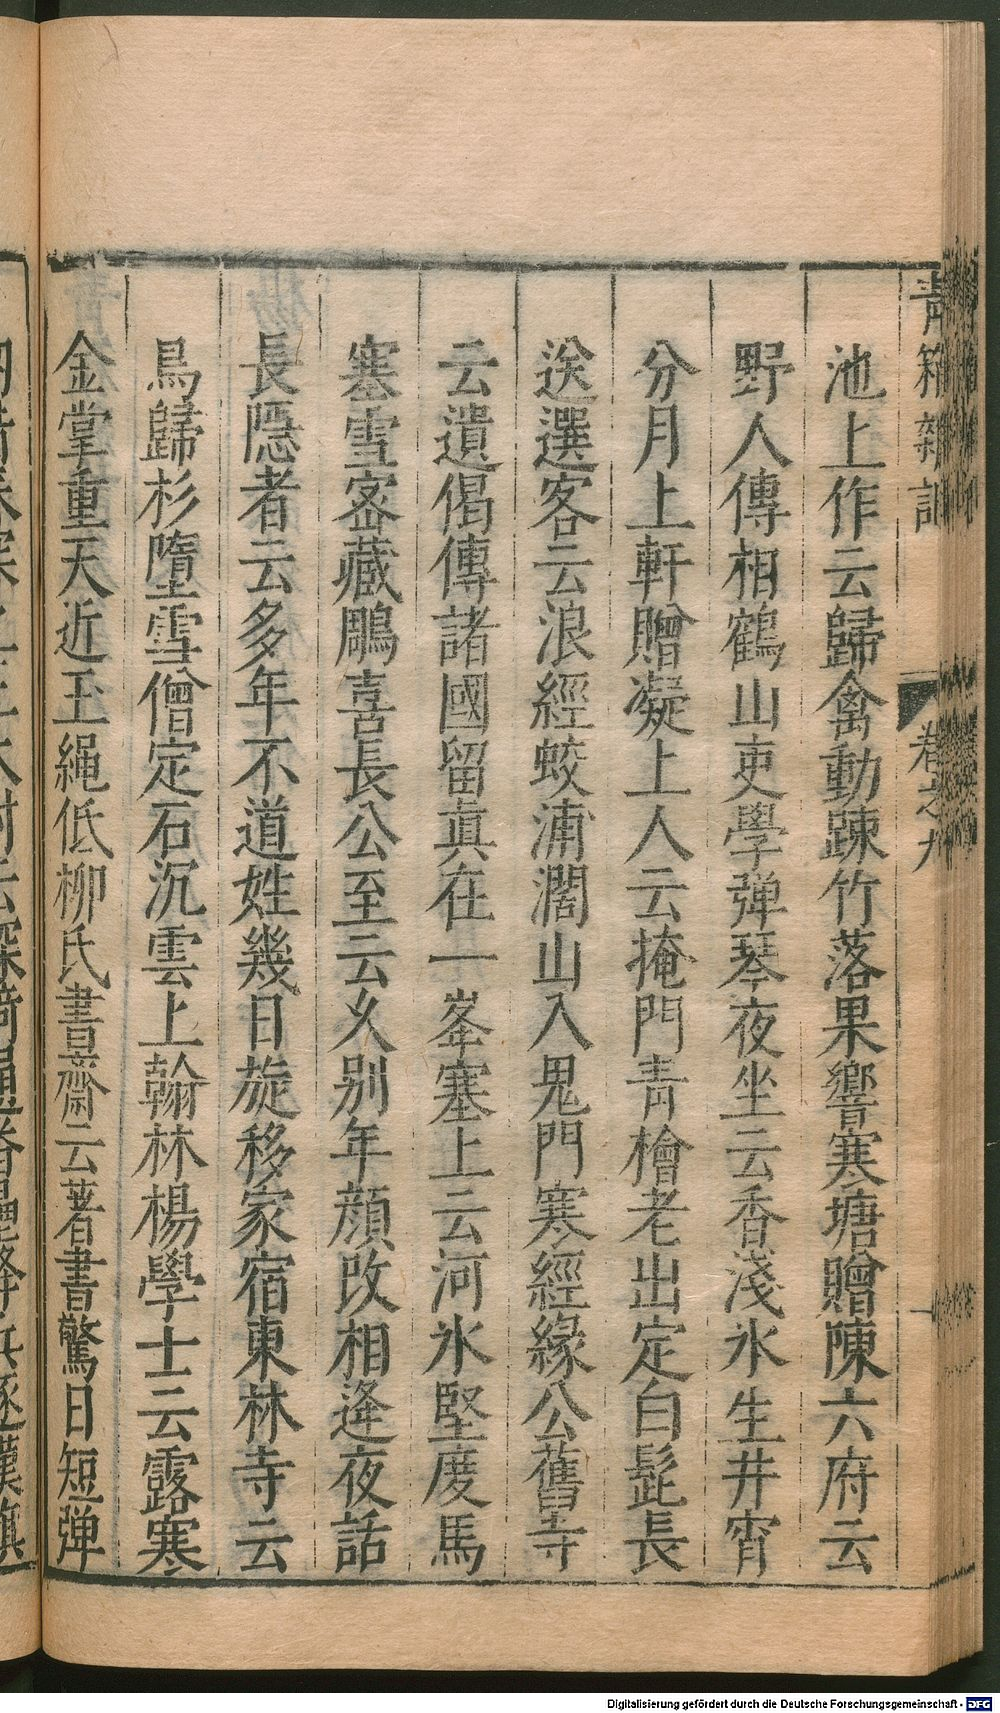 青箱雜記
卷之九
池上作云歸禽動踈竹落果響寒塘贈陳六府云
野人傳相鶴山吏學弾琴夜坐云香淺氷生井宵
分月上軒贈凝上人云掩門青檜老出定白髭長
送選客云浪經蛟浦濶山入鬼門寒經緣公舊寺
云遺偈傳諸國留眞在一峯塞上云河氷堅度馬
塞雪宻藏鵰喜長公至云乆别年顔改相逢夜話
長隠者云多年不道姓幾日旋移家宿東林寺云
鳥歸杉墮雪僧定石沉雲上翰林楊學士云露寒
金掌重天近玉繩低柳氏書齋云著書驚日短弾
Digitalisierung gefördert durch die Deutsche Forschungsgemeinschaft - DFG